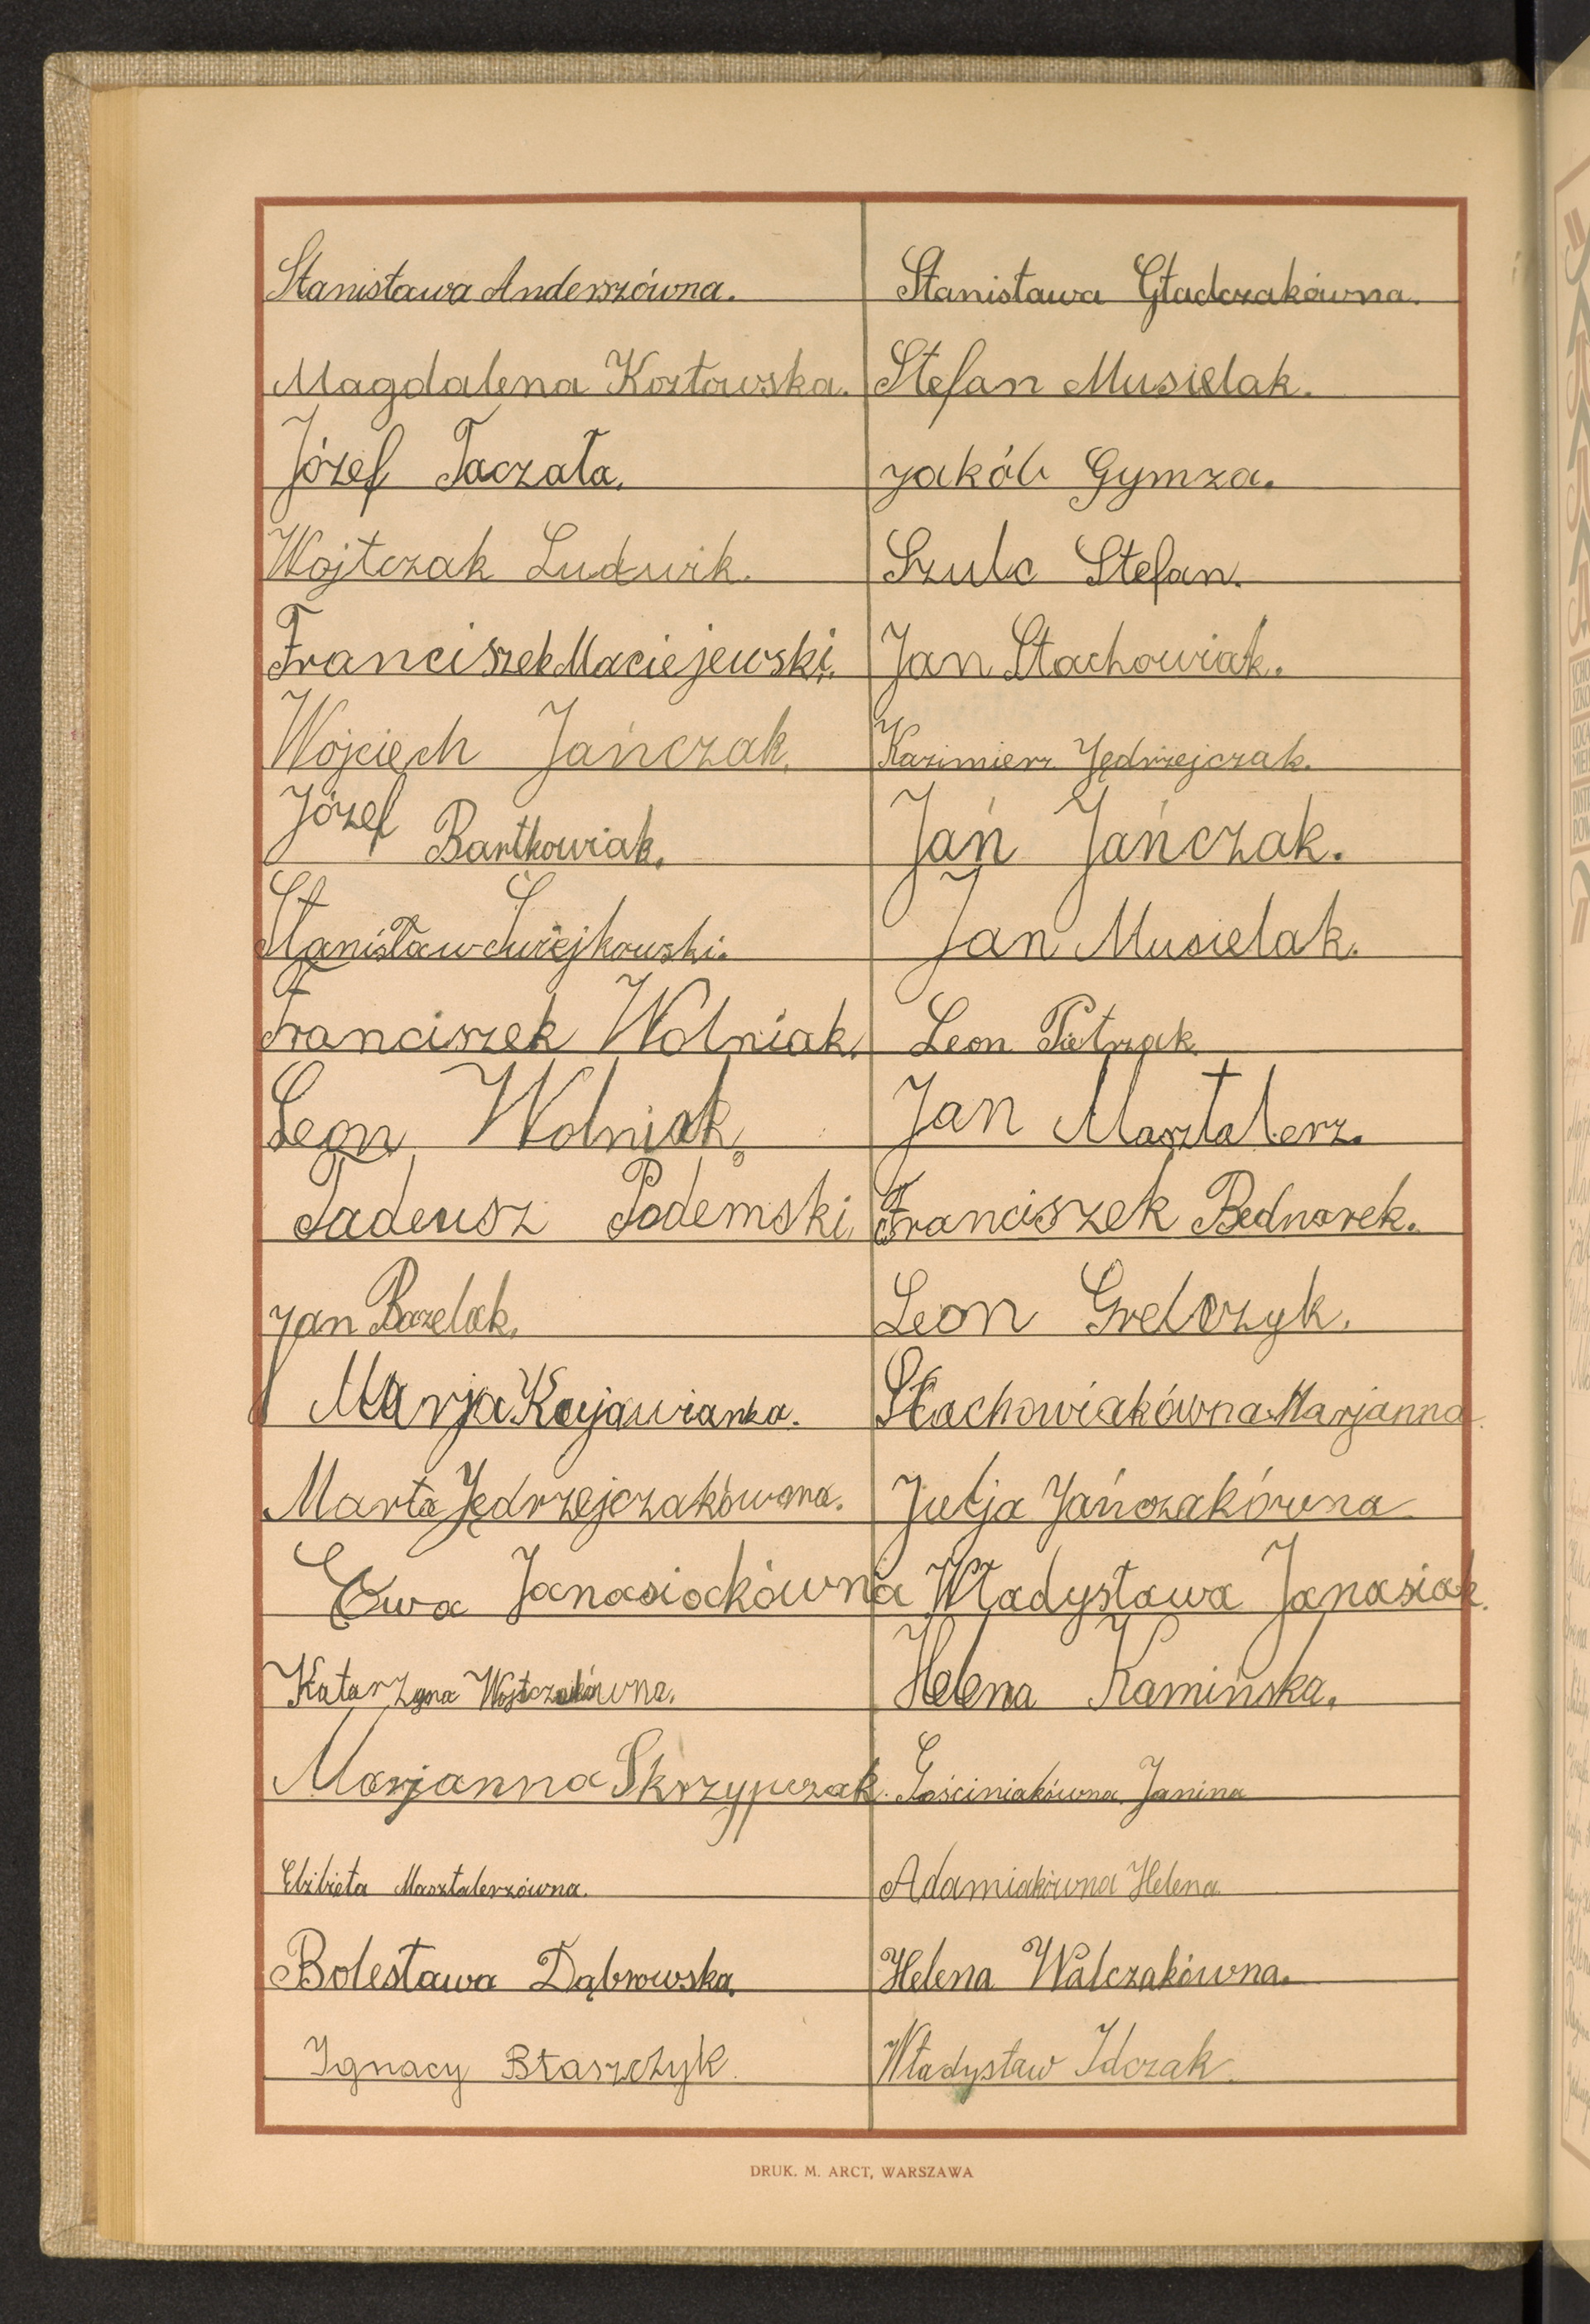 Stanisława Anderszówna.
Stanisława Gładczakówna.
Magdalena Kozłowska.
Stefan Musielak.
Józef Taczała.
Jakób Gymza.
Wojtczak Ludwik.
Szulc Stefan.
Franciszek Maciejewski.
Jan Stachowiak.
Wojciech Jańczak.
Kazimierz Jędrzejczak.
Józef Bartkowiak.
Jań Jańczak.
Stanisław Świejkowski.
Jan Musielak.
Franciszek Wolniak.
Leon Pietrzak.
Leon Wolniak.
Jan Masztalerz.
Tadeusz Podemski.
Franciszek Bednarek.
Jan Bazelak.
Leon Grelczyk.
Marja Kujawianka.
Stachowiakówna Marjanna.
Marta Jędrzejczakówna.
Julja Jańczakówna
Ewa Janasiockówna
Władysława Janasiak.
Katarzyna Wojtczakówna.
Helena Kamińska.
Marjanna Skrzypczak.
Gościniakówna Janina
Elżbieta Masztalerzówna.
Adamiakówna Helena
Bolesława Dąbrowska.
Helena Walczakówna.
Ignacy Błaszczyk.
Władysław Idczak.
DRUK. M. ARCT, WARSZAWA